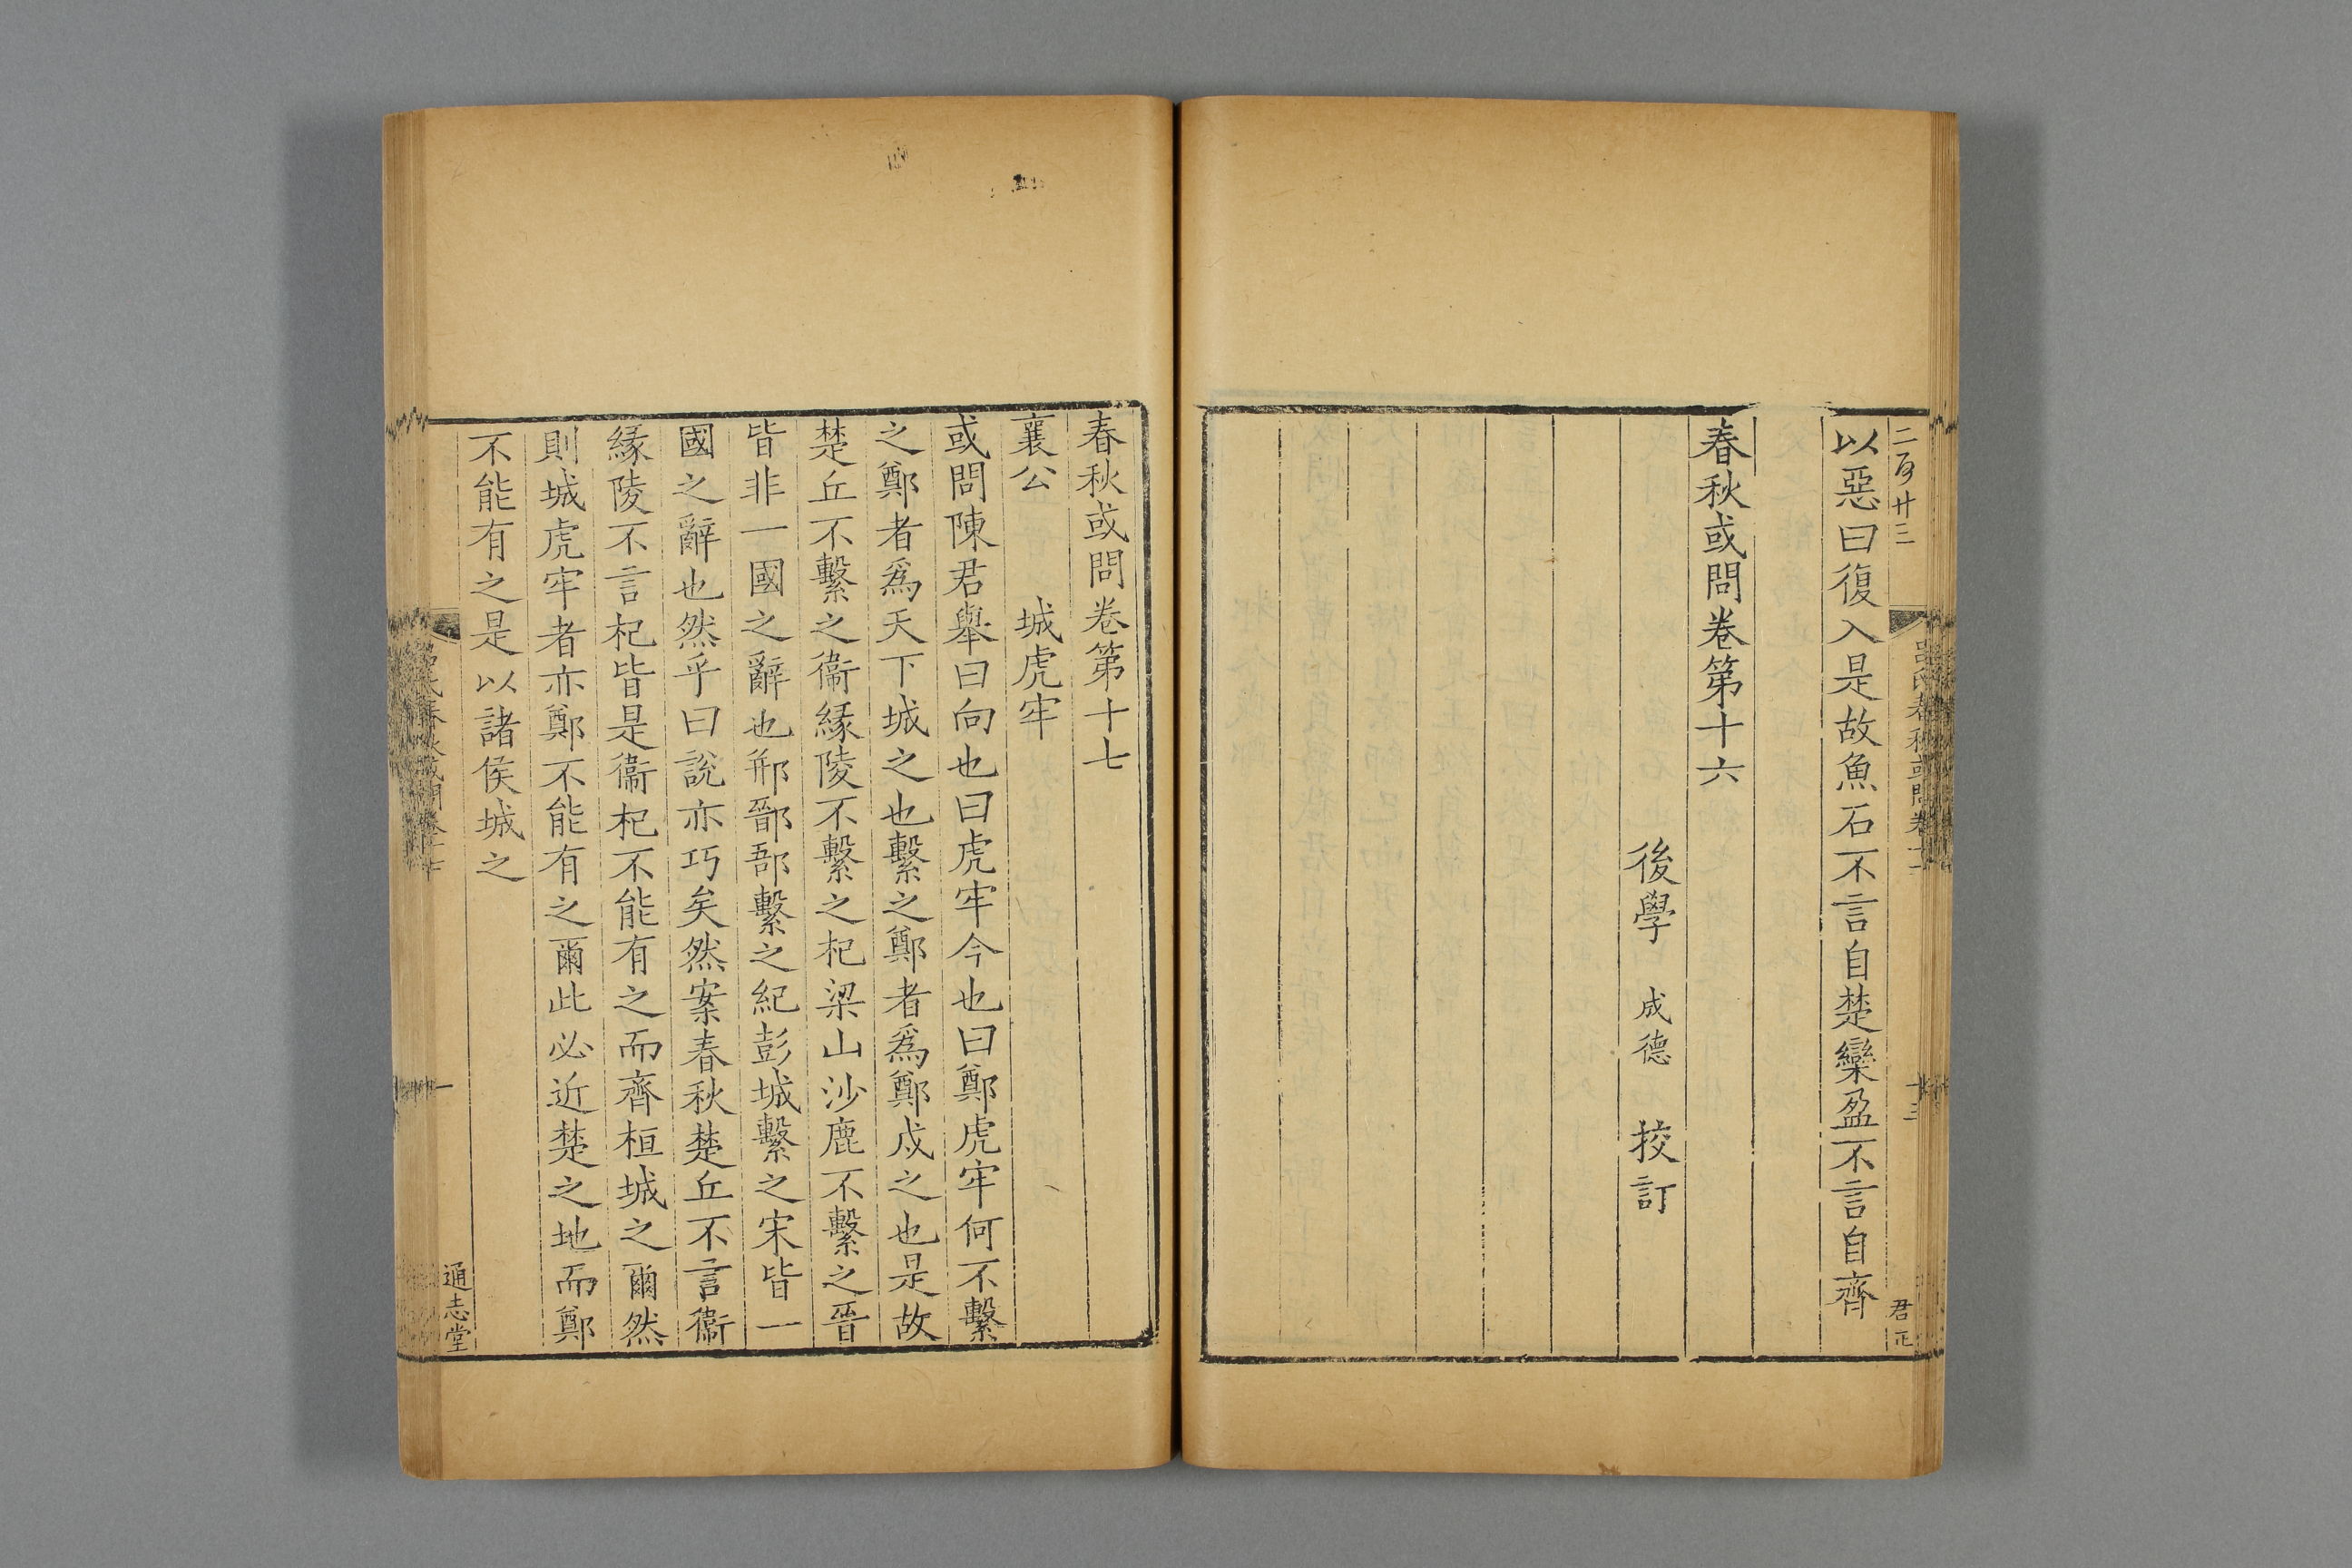 二百廿三
吕氏春秋或問卷十六
十三
君正
以惡曰復入是故魚石不言自楚欒盈不言自齊
春秋或問卷第十六
後學 成德 挍訂
春秋或問卷第十七
襄公 城虎牢
或問陳君舉曰向也曰虎牢今也曰鄭虎牢何不繫
之鄭者爲天下城之也繫之鄭者爲鄭戍之也是故
楚丘不繫之衞緣陵不繫之杞梁山沙鹿不繫之晉
皆非一國之辭也郱鄑郚繫之紀彭城繫之宋皆一
國之辭也然乎曰說亦巧矣然案春秋楚丘不言衞
緣陵不言杞皆是衞杞不能有之而齊桓城之爾然
則城虎牢者亦鄭不能有之爾此必近楚之地而鄭
不能有之是以諸侯城之
吕氏春秋或問卷十七
一
通志堂